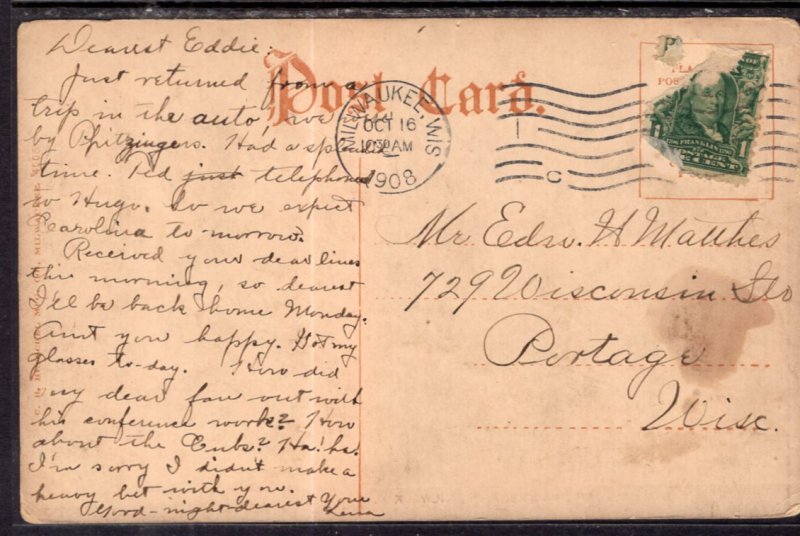 Dearest Eddie:
Just returned from a
trip in the auto, we
by Phitzingers. Had a
time. Ted just telephoned
to Hugo. So we expect
Carolina to-morrow.
Received your dear lines
this morning, so dearest
I'll be back home Monday.
Aint you happy. Got my
glasses to-day. How did
my dear fare out with
his conference work? How
about the Cubs? Ha! ha!
I'm sorry I didn't make a
heavy bet with you.
Good-night dearest Your
Lena
Post Card.
MILWAUKEE, WIS
OCT 16
1030AM
1908
1
C
POS
FRANKLIN
1 CENT
Mr Edw. H Matthes
729 Wisconsin
Portage
Wisc.